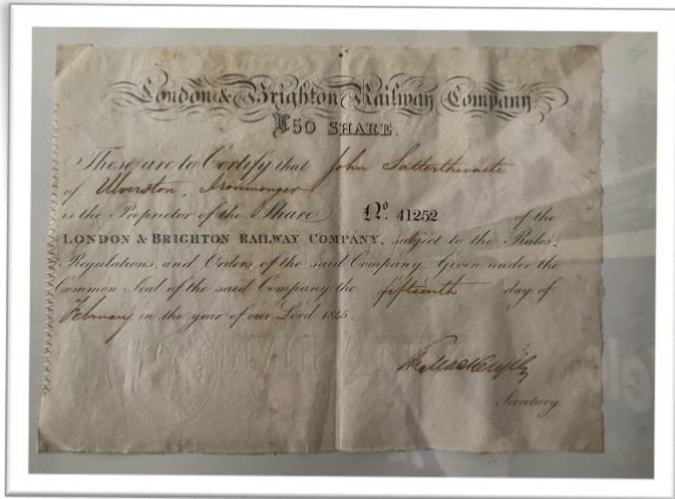 London & Brighton Railway Company
£50 SHARE.
These are to Certify that John Satterthwaite
of Ulverston, Ironmonger
is the Proprietor of the Share No. 41252 of the
LONDON & BRIGHTON RAILWAY COMPANY, subject to the Rules,
Regulations, and Orders of the said Company. Given under the
Common Seal of the said Company the fifteenth day of
February in the year of our Lord 1845.
Secretary